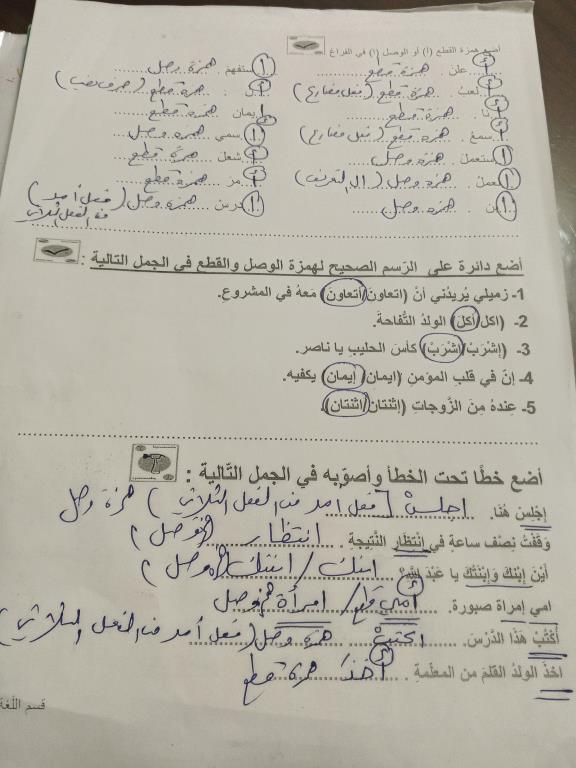 أضع همزة القطع (أ) أو الوصل (ا) في الفراغ
أ علن . همزة قطع
ا ستفهم . همزة وصل
أ لعب . همزة قطع (فعل مضارع)
أ ن . همزة قطع (حرف نصب)
أ نا . همزة قطع
إ يمان . همزة قطع
أ سمع . همزة قطع (فعل مضارع)
ا سمي . همزة وصل
ا ستعمل . همزة وصل
أ شعل . همزة قطع
ا لعمل . همزة وصل (ال التعريف)
أ مر . همزة قطع
ا بن . همزة وصل
ا حرص . همزة وصل (فعل أمر من الفعل الثلاثي)
أضع دائرة على الرّسم الصحيح لهمزة الوصل والقطع في الجمل التالية :
1- زميلي يُريدُني أنْ (اتعاونَ/أتعاونَ) مَعهُ في المشروع.
2- (اكل/أكلَ) الولدُ التُّفاحةَ.
3- (إشْرَبْ/اشْرَبْ) كأسَ الحليبِ يا ناصر.
4- إنّ في قلبِ المؤمنِ (ايمان/ إيمان) يكفيه.
5- عِندهُ مِنَ الزَّوجاتِ (إثنتان/اثنتان).
أضع خطًا تحت الخطأ وأصوّبه في الجمل التّالية :
إجْلِسْ هُنا. اجلسْ (فعل أمر من الفعل الثلاثي) همزة وصل
وَقَفْتُ نِصْفَ ساعةٍ في إنتظار النَّتيجةِ . انتظار (همزة وصل)
أيْنَ إبْنكَ وَإبْنَتُكَ يا عَبْدَ الله؟ ابنك / ابنتك (همزة وصل)
امي إمرأة صبورة. أمي قطع / امرأة همزة وصل
أكْتُبْ هَذَا الدَّرْسَ. اكتبْ همزة وصل (فعل أمر من الفعل الثلاثي)
اخذَ الولدُ القلمَ من المعلّمةِ . أخذَ همزة قطع
قسم اللّغة